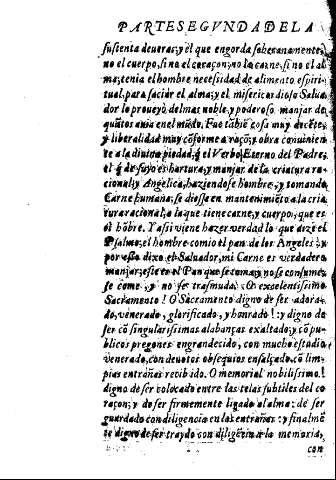 PARTE SEGVNDA DE LA
sustenta deueras; y el que engorda soberanamente,
no el cuerpo, si no el coraçon; no la carne, si no el al-
ma; tenia el hombre necessidad de alimento espiri-
tual, para saciar el alma; y el misericordioso Salua-
dor lo proueyò del mas noble, y poderoso manjar de
quãtos auia en el mũdo. Fue tãbiẽ cosa muy decẽte,
y liberalidad muy cõforme a razõ, y obra conuinien-
te a la diuina piedad, q̃ el Verbo Eterno del Padre,
el q̃ de suyo es hartura, y manjar de la criatura ra-
cional, y Angelica, haziendose hombre, y tomando
Carne humana, se diesse en mantenimiẽto a la cria-
tura racional, a la que tiene carne, y cuerpo, que es
el hõbre. Y assi viene hazer verdad lo que dize el
Psalmo; el hombre comio el pan de los Angeles; y
por esso dixo el Saluador, mi Carne es verdadero
manjar; este es el Pan que se toma, y no se consume,
se come, y no se trasmuda. O excelentissimo
Sacramento! O Sacramento digno de ser adora-
do, venerado, glorificado, y honrado!: y digno de
ser cõ singularissimas alabanças exaltado; y cõ pu-
blicos pregones engrandecido, con mucho estudio
venerado, con deuotos obsequios ensalçado, cõ lim-
pias entrañas recibido. O memorial nobilissimo!
digno de ser colocado entre las telas subtiles del co-
raçon; y de ser firmemente ligado al alma: de ser
guardado con diligencia en las entrañas: y finalmẽ
te digno de ser traydo con diligẽcia a la memoria,
con